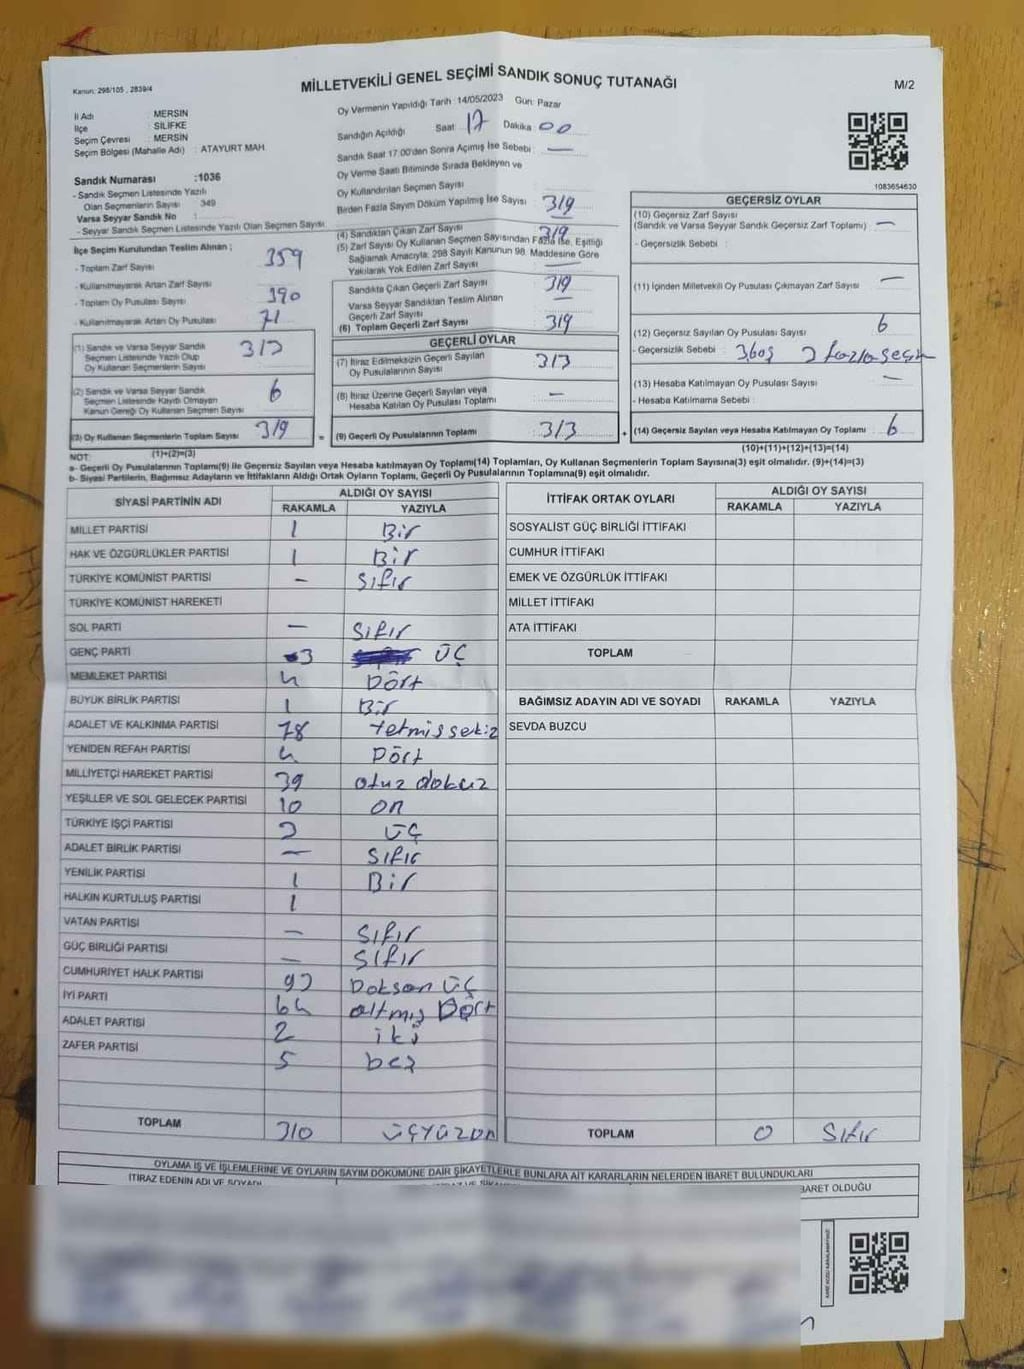 Kanun: 298/105 , 2839/4
MİLLETVEKİLİ GENEL SEÇİMİ SANDIK SONUÇ TUTANAĞI
M/2
İl Adı MERSİN
İlçe SİLİFKE
Seçim Çevresi : MERSİN
Seçim Bölgesi (Mahalle Adı) : ATAYURT MAH
Sandık Numarası :1036
- Sandık Seçmen Listesinde Yazılı
Olan Seçmenlerin Sayısı 349
Varsa Seyyar Sandık No :
- Seyyar Sandık Seçmen Listesinde Yazılı Olan Seçmen Sayısı
Oy Vermenin Yapıldığı Tarih :14/05/2023 Gün: Pazar
Sandığın Açıldığı Saat : 17 Dakika : 00
Sandık Saat 17.00'den Sonra Açımış İse Sebebi : —
Oy Verme Saati Bitiminde Sırada Bekleyen ve
Oy Kullandırılan Seçmen Sayısı
Birden Fazla Sayım Döküm Yapılmış İse Sayısı 319
1083654630
İlçe Seçim Kurulundan Teslim Alınan ;
- Toplam Zarf Sayısı 359
- Kullanılmayarak Artan Zarf Sayısı
- Toplam Oy Pusulası Sayısı 390
- Kullanılmayarak Artan Oy Pusulası 71
(1) Sandık ve Varsa Seyyar Sandık
Seçmen Listesinde Yazılı Olup
Oy Kullanan Seçmenlerin Sayısı 313
(2) Sandık ve Varsa Seyyar Sandık
Seçmen Listesinde Kayıtlı Olmayan
Kanun Gereği Oy Kullanan Seçmen Sayısı 6
(3) Oy Kullanan Seçmenlerin Toplam Sayısı 319 =
(1)+(2)=(3)
(4) Sandıktan Çıkan Zarf Sayısı 319
(5) Zarf Sayısı Oy Kullanan Seçmen Sayısından Fazla İse, Eşitliği
Sağlamak Amacıyla, 298 Sayılı Kanunun 98. Maddesine Göre
Yakılarak Yok Edilen Zarf Sayısı —
Sandıkta Çıkan Geçerli Zarf Sayısı 319
Varsa Seyyar Sandıktan Teslim Alınan
Geçerli Zarf Sayısı —
(6) Toplam Geçerli Zarf Sayısı 319
GEÇERLİ OYLAR
(7) İtiraz Edilmeksizin Geçerli Sayılan
Oy Pusulalarının Sayısı 313
(8) İtiraz Üzerine Geçerli Sayılan veya
Hesaba Katılan Oy Pusulası Toplamı —
(9) Geçerli Oy Pusulalarının Toplamı 313 +
GEÇERSİZ OYLAR
(10) Geçersiz Zarf Sayısı
(Sandık ve Varsa Seyyar Sandık Geçersiz Zarf Toplamı) —
- Geçersizlik Sebebi :
(11) İçinden Milletvekili Oy Pusulası Çıkmayan Zarf Sayısı —
(12) Geçersiz Sayılan Oy Pusulası Sayısı 6
- Geçersizlik Sebebi : 3 boş 3 fazla seçim
(13) Hesaba Katılmayan Oy Pusulası Sayısı —
- Hesaba Katılmama Sebebi :
(14) Geçersiz Sayılan veya Hesaba Katılmayan Oy Toplamı 6
(10)+(11)+(12)+(13)=(14)
NOT:
a- Geçerli Oy Pusulalarının Toplamı(9) ile Geçersiz Sayılan veya Hesaba katılmayan Oy Toplamı(14) Toplamları, Oy Kullanan Seçmenlerin Toplam Sayısına(3) eşit olmalıdır. (9)+(14)=(3)
b- Siyasi Partilerin, Bağımsız Adayların ve İttifakların Aldığı Ortak Oyların Toplamı, Geçerli Oy Pusulalarının Toplamına(9) eşit olmalıdır.
SİYASİ PARTİNİN ADI ALDIĞI OY SAYISI
RAKAMLA YAZIYLA
MİLLET PARTİSİ 1 Bir
HAK VE ÖZGÜRLÜKLER PARTİSİ 1 Bir
TÜRKİYE KOMÜNİST PARTİSİ - Sıfır
TÜRKİYE KOMÜNİST HAREKETİ
SOL PARTİ — Sıfır
GENÇ PARTİ 3 ÜÇ
MEMLEKET PARTİSİ 4 Dört
BÜYÜK BİRLİK PARTİSİ 1 Bir
ADALET VE KALKINMA PARTİSİ 78 Yetmiş sekiz
YENİDEN REFAH PARTİSİ 4 Dört
MİLLİYETÇİ HAREKET PARTİSİ 39 otuz dokuz
YEŞİLLER VE SOL GELECEK PARTİSİ 10 on
TÜRKİYE İŞÇİ PARTİSİ 3 ÜÇ
ADALET BİRLİK PARTİSİ — Sıfır
YENİLİK PARTİSİ 1 Bir
HALKIN KURTULUŞ PARTİSİ 1
VATAN PARTİSİ — Sıfır
GÜÇ BİRLİĞİ PARTİSİ — Sıfır
CUMHURİYET HALK PARTİSİ 93 Doksan üç
İYİ PARTİ 64 altmış Dört
ADALET PARTİSİ 2 iki
ZAFER PARTİSİ 5 beş
TOPLAM 310 üçyüzon
İTTİFAK ORTAK OYLARI ALDIĞI OY SAYISI
RAKAMLA YAZIYLA
SOSYALİST GÜÇ BİRLİĞİ İTTİFAKI
CUMHUR İTTİFAKI
EMEK VE ÖZGÜRLÜK İTTİFAKI
MİLLET İTTİFAKI
ATA İTTİFAKI
TOPLAM
BAĞIMSIZ ADAYIN ADI VE SOYADI RAKAMLA YAZIYLA
SEVDA BUZCU
TOPLAM 0 Sıfır
OYLAMA İŞ VE İŞLEMLERİNE VE OYLARIN SAYIM DÖKÜMÜNE DAİR ŞİKAYETLERLE BUNLARA AİT KARARLARIN NELERDEN İBARET BULUNDUKLARI
İTİRAZ EDENİN ADI VE SOYADI
BARET OLDUĞU